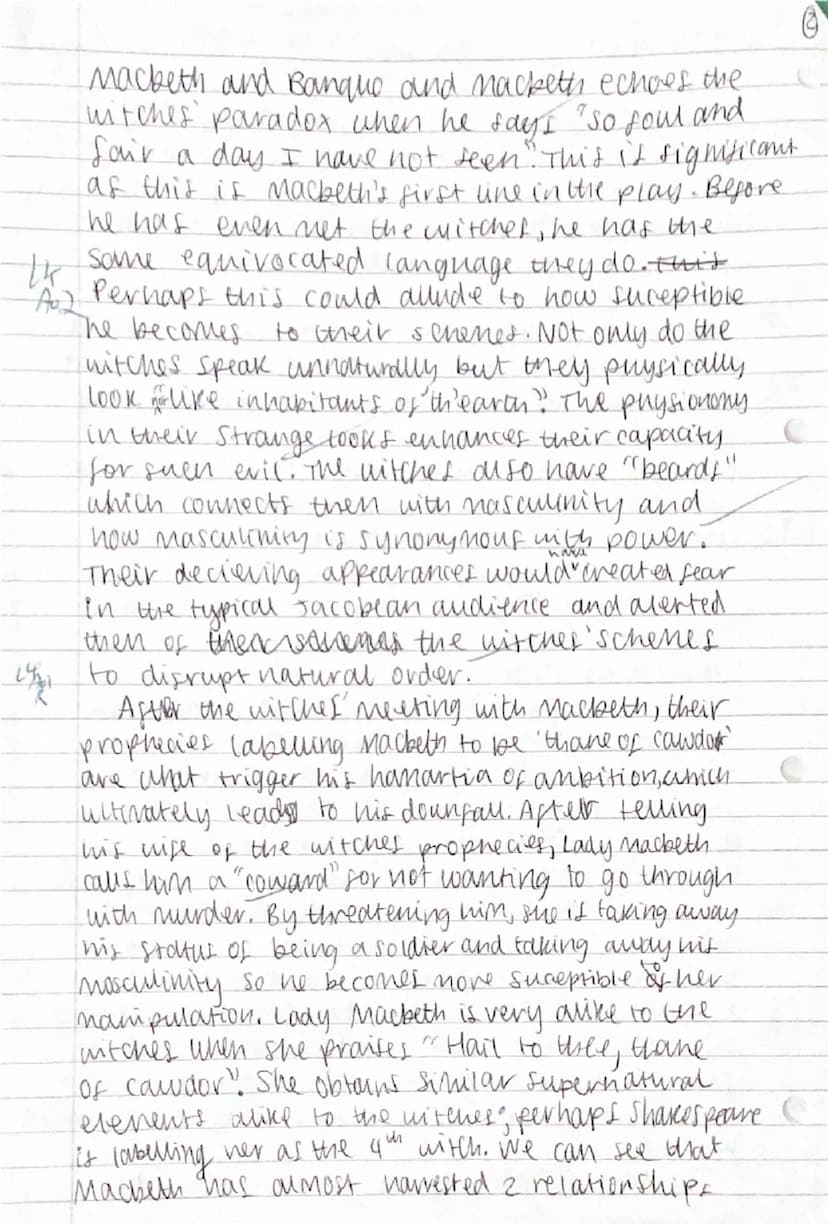 2
Macbeth and Banquo and Macbeth echoes the
witches' paradox when he says "so foul and
fair a day I have not seen". This is significant
as this is Macbeth's first line in the play. Before
he has even met the witches, he has the
same equivocated language they do. this
L4
AO2
Perhaps this could allude to how suceptible
he becomes to their schemes. Not only do the
witches speak unnaturally but they physically
look "not like inhabitants of th'earth". The physionomy
in their strange looks enhances their capacity
for such evil. The witches also have "beards"
which connects them with masculinity and
how masculinity is synonymous with power.
Their decieving appearances would have created fear
in the typical Jacobean audience and alerted
them of the witches' schemes
L4
AO1
to disrupt natural order.
After the witches' meeting with Macbeth, their
prophecies labelling Macbeth to be 'thane of cawdor'
are what trigger his hamartia of ambition, which
ultimately leads to his downfall. After telling
his wife of the witches prophecies, Lady Macbeth
calls him a "coward" for not wanting to go through
with murder. By threatening him, she is taking away
his status of being a soldier and taking away his
masculinity so he becomes more suceptible to her
manipulation. Lady Macbeth is very alike to the
witches when she praises "Hail to thee, thane
of cawdor". She obtains similar supernatural
elements alike to the witches; perhaps Shakespeare
is labelling her as the 4th witch. We can see that
Macbeth has almost harvested 2 relationships